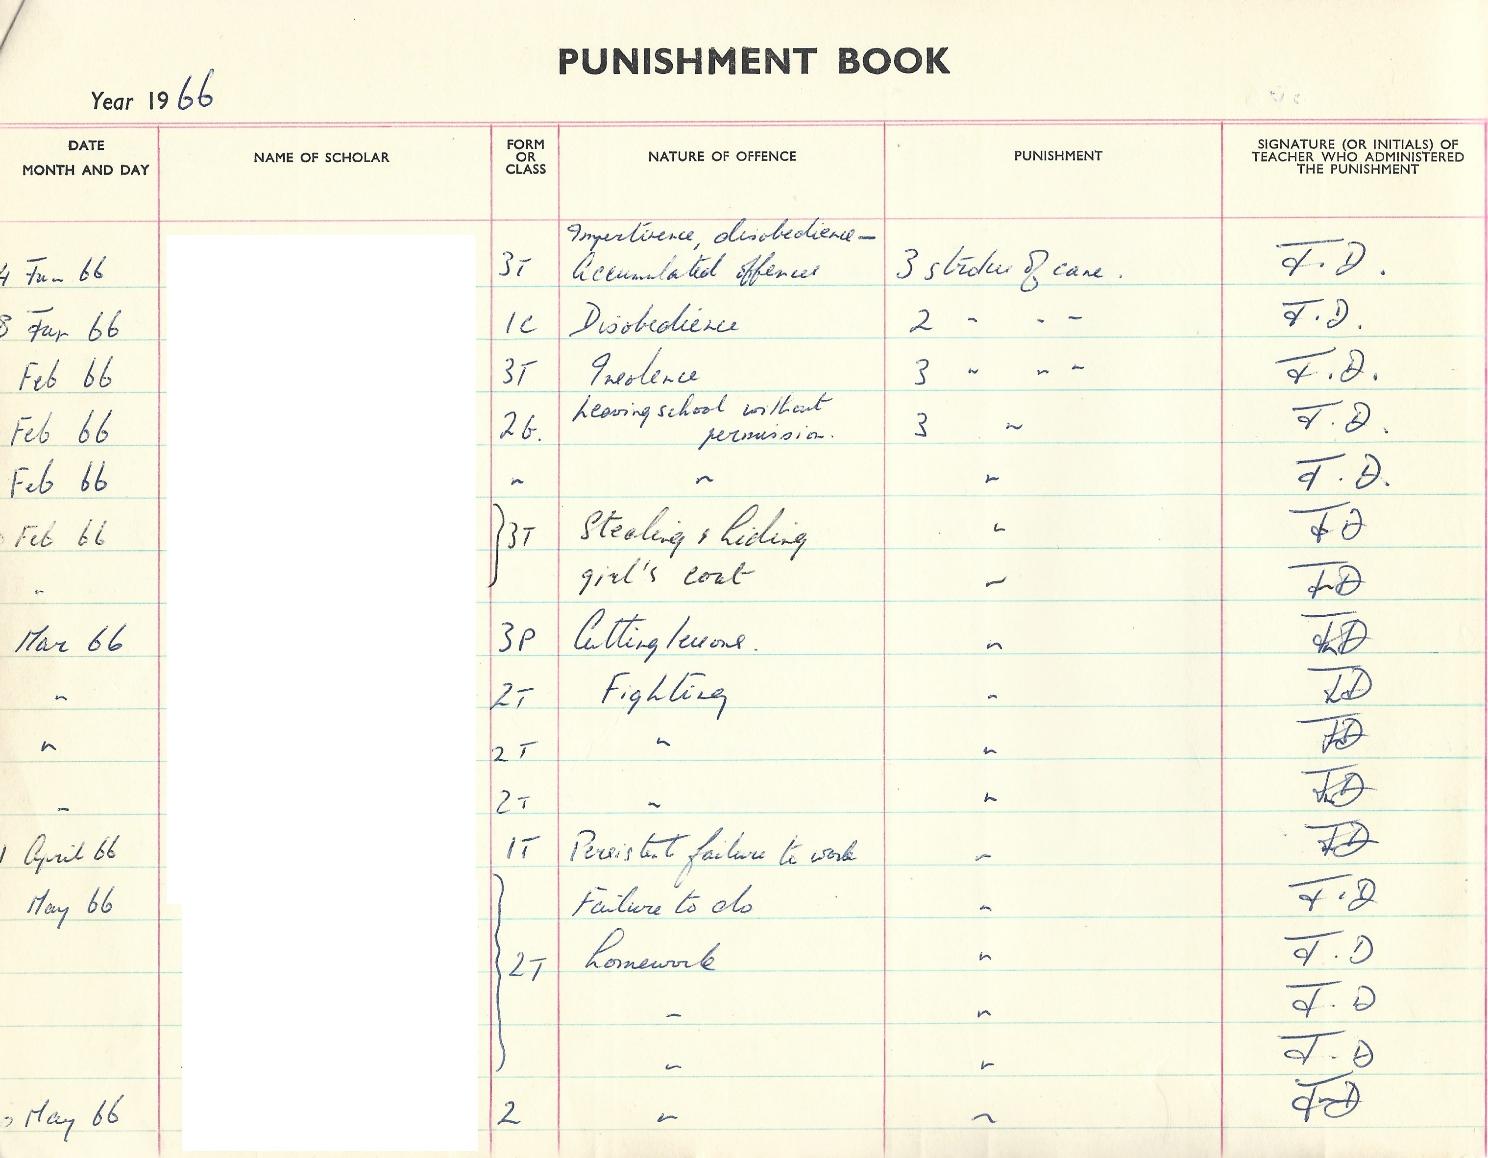 PUNISHMENT BOOK
Year 19 66
DATE
MONTH AND DAY
NAME OF SCHOLAR
FORM
OR
CLASS
NATURE OF OFFENCE
PUNISHMENT
SIGNATURE (OR INITIALS) OF
TEACHER WHO ADMINISTERED
THE PUNISHMENT
Impertinence, disobedience —
4 Jan 66 3T Accumulated offences 3 strokes of cane .
8 Jan 66 1C Disobedience 2 " " "
Feb 66 3T Insolence 3 " " "
Feb 66 2G. Leaving school without
permission. 3 "
Feb 66 " " "
Feb 66 3T Stealing & hiding "
" girl's coat "
Mar 66 3P Cutting lessons. "
" 2T Fighting "
" 2T " "
" 2T " "
1 April 66 1T Persistent failure to work "
May 66 Failure to do "
2T homework "
" "
" "
May 66 2 " "